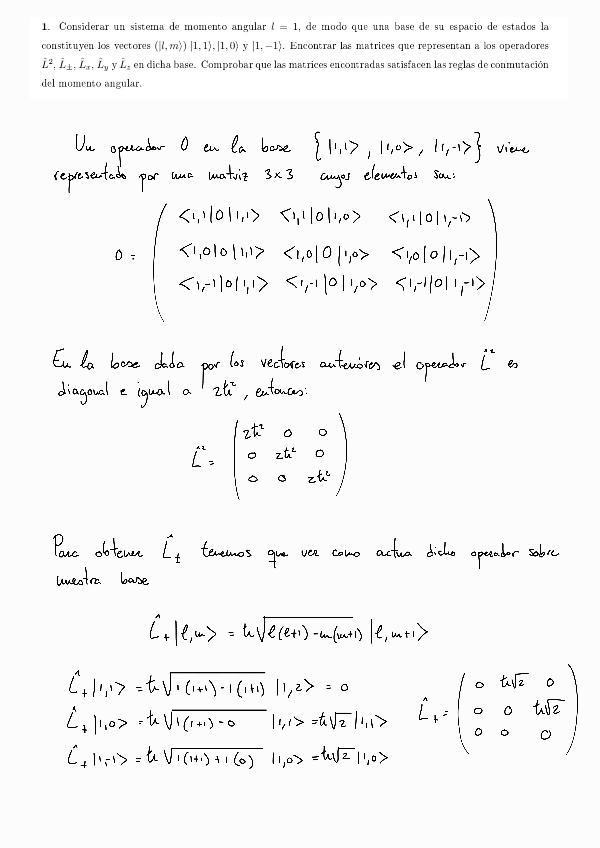 1. Considerar un sistema de momento angular l = 1, de modo que una base de su espacio de estados la
constituyen los vectores (|l, m⟩) |1, 1⟩, |1, 0⟩ y |1, −1⟩. Encontrar las matrices que representan a los operadores
L̂², L̂±, L̂x, L̂y y L̂z en dicha base. Comprobar que las matrices encontradas satisfacen las reglas de conmutación
del momento angular.
Un operador O en la base { |1,1⟩ , |1,0⟩ , |1,-1⟩ } viene
representado por una matriz 3×3 cuyos elementos son:
<1,1|O|1,1> <1,1|O|1,0> <1,1|O|1,-1>
O = <1,0|O|1,1> <1,0|O|1,0> <1,0|O|1,-1>
<1,-1|O|1,1> <1,-1|O|1,0> <1,-1|O|1,-1>
En la base dada por los vectores anteriores el operador L̂² es
diagonal e igual a 2ħ², entonces:
2ħ² 0 0
L̂² = 0 2ħ² 0
0 0 2ħ²
Para obtener L̂± tenemos que ver como actua dicho operador sobre
nuestra base
L̂+|l,m> = ħ√(l(l+1)-m(m+1)) |l,m+1>
L̂+|1,1> = ħ√(1(1+1)-1(1+1)) |1,2> = 0
L̂+|1,0> = ħ√(1(1+1)-0) |1,1> = ħ√2 |1,1>
L̂+|1,-1> = ħ√(1(1+1)+1(0)) |1,0> = ħ√2 |1,0>
0 ħ√2 0
L̂+ = 0 0 ħ√2
0 0 0